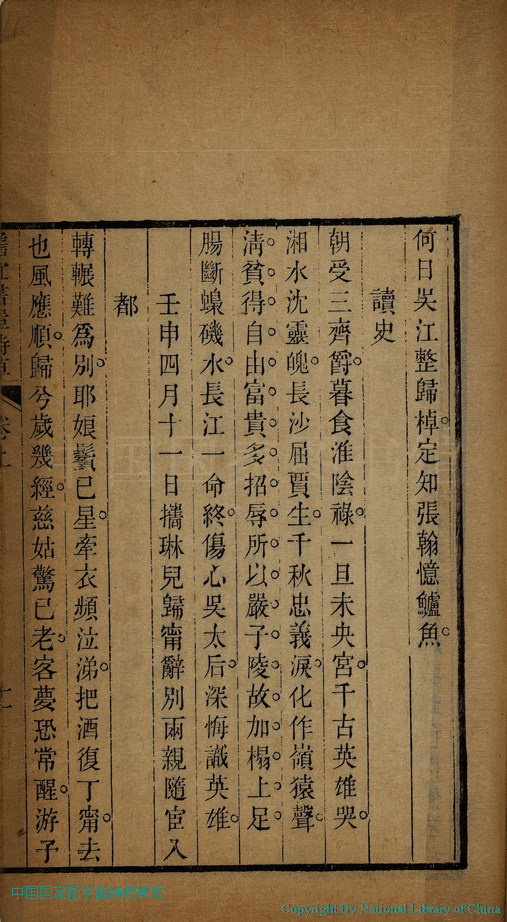 何日吳江整歸棹定知張翰憶鱸魚
讀史
朝受三齊爵暮食淮陰祿一旦未央宮千古英雄哭
湘水沈靈魄長沙屈賈生千秋忠義淚化作嶺猿聲
淸貧得自由富貴多招辱所以嚴子陵故加榻上足
腸斷蟂磯水長江一命終傷心吳太后深悔識英雄
壬申四月十一日攜琳兒歸甯辭別兩親隨宦入
都
轉輾難爲別耶娘鬢已星牽衣頻泣涕把酒復丁甯去
也風應順歸兮歲幾經慈姑驚已老客夢恐常醒游子
Copyright By National Library of China